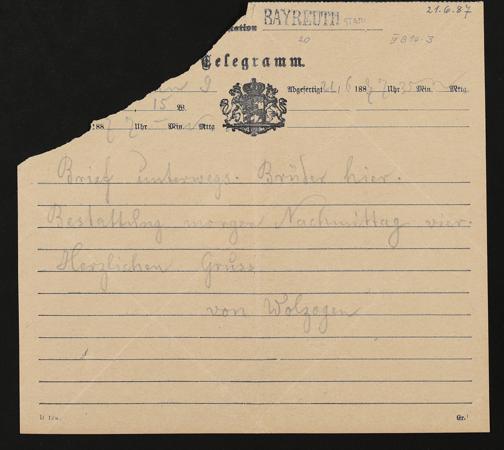 BAYREUTH STADT
21.6.87
20
Telegramm.
15 W.
Abgefertigt 21/6 1887 Uhr Min. Mttg.
188 Uhr Min. Mttg
Brief unterwegs. Brüder hier.
Bestattung morgen Nachmittag vier.
Herzlichen Gruss
von Wolzogen